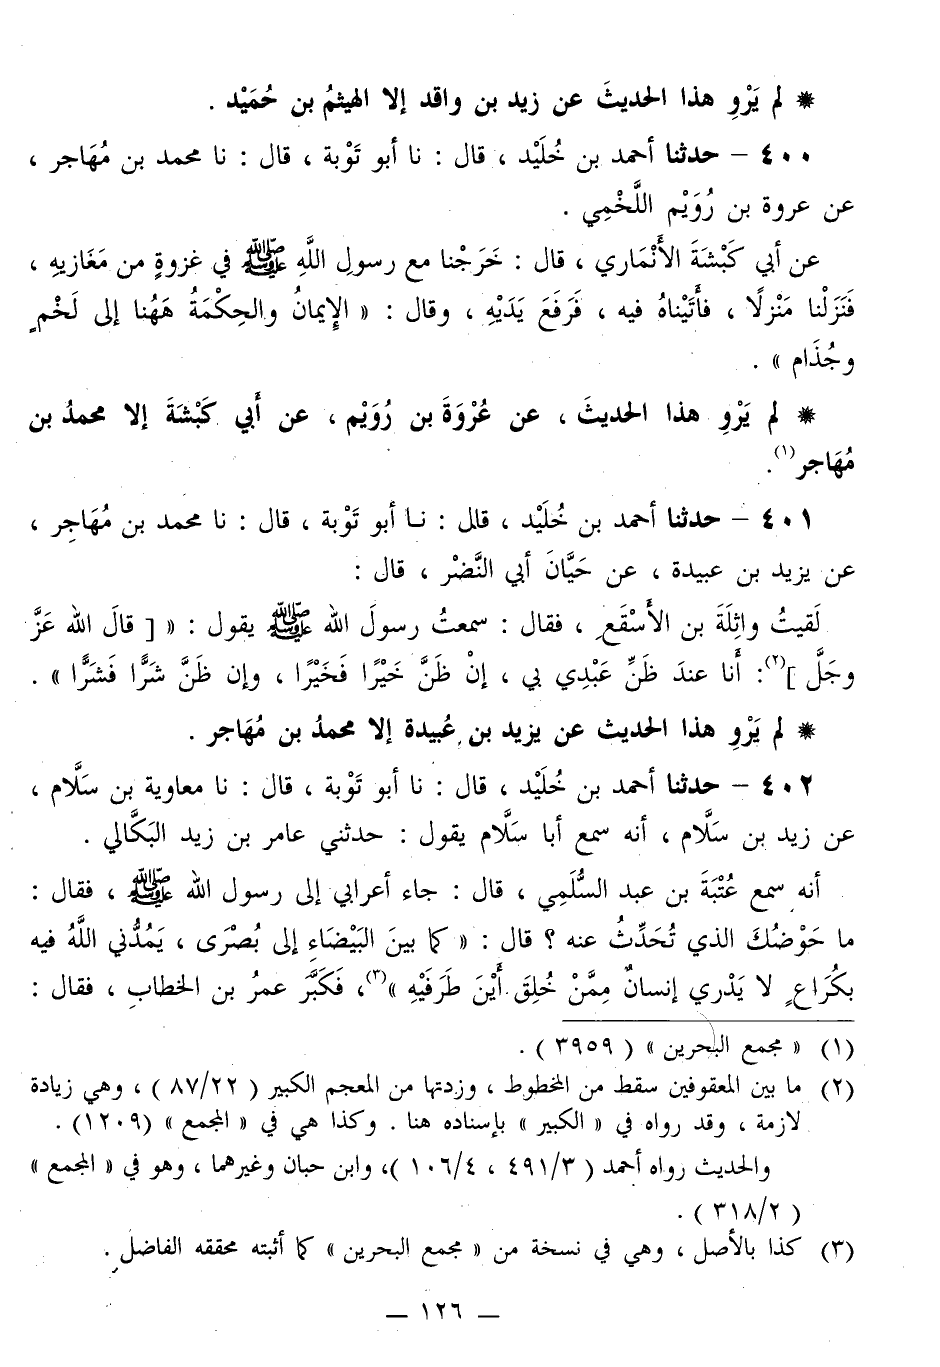 * لم يَرْوِ هذا الحديثَ عن زيد بن واقد إلا الهيثمُ بن حُمَيْد .
٤٠٠ – حدثنا أحمد بن خُلَيْد ، قال : نا أبو تَوْبة ، قال : نا محمد بن مُهَاجر ،
عن عروة بن رُوَيْم اللَّخْمِي .
عن أبي كَبْشَةَ الأَنْماري ، قال : خَرَجْنا مع رسولِ اللَّهِ ﷺ في غزوةٍ من مَغَازيهِ ،
فَنَزَلْنا مَنْزلًا ، فأَتَيْناهُ فيه ، فَرَفَعَ يَدَيْهِ ، وقال : « الإِيمانُ والحِكْمَةُ هَهُنا إلى لَخْمٍ
وجُذَام » .
* لم يَرْوِ هذا الحديثَ ، عن عُرْوَةَ بن رُوَيْم ، عن أَبي كَبْشَةَ إلا محمدُ بن
مُهَاجر(١).
٤٠١ – حدثنا أحمد بن خُلَيْد ، قال : نـا أبو تَوْبة ، قال : نا محمد بن مُهَاجِر ،
عن يزيد بن عبيدة ، عن حَيَّانَ أبي النَّضْر ، قال :
لَقيتُ واثِلَةَ بن الأَسْقَعِ ، فقال : سمعتُ رسولَ الله ﷺ يقول : « [ قالَ الله عَزَّ
وجَلَّ ](٢): أَنا عندَ ظَنِّ عَبْدِي بي ، إنْ ظَنَّ خَيْرًا فَخَيْرًا ، وإن ظَنَّ شَرًّا فَشَرًّا » .
* لم يَرْوِ هذا الحديث عن يزيد بن عُبيدة إلا محمدُ بن مُهَاجر .
٤٠٢ – حدثنا أحمد بن خُلَيْد ، قال : نا أبو تَوْبة ، قال : نا معاوية بن سَلَّام ،
عن زيد بن سَلَّام ، أنه سمع أبا سَلَّام يقول : حدثني عامر بن زيد البَكَّالي .
أنه سمع عُتْبَةَ بن عبد السُّلَمِي ، قال : جاء أعرابي إلى رسول الله ﷺ ، فقال :
ما حَوْضُكَ الذي تُحَدِّثُ عنه ؟ قال : « كما بينَ البَيْضَاءِ إلى بُصْرَى ، يَمُدُّني اللَّهُ فيه
بكُرَاعٍ لا يَدْري إنسانٌ مِمَّنْ خُلِقَ أَيْنَ طَرَفَيْهِ »(٣)، فَكَبَّرَ عمرُ بن الخطاب ، فقال :
(١) « مجمع البحرين » ( ٣٩٥٩ ) .
(٢) ما بين المعقوفين سقط من المخطوط ، وزدتها من المعجم الكبير ( ٨٧/٢٢ ) ، وهي زيادة
لازمة ، وقد رواه في « الكبير » بإسناده هنا . وكذا هي في « المجمع » (١٢٠٩) .
والحديث رواه أحمد ( ٤٩١/٣ ، ١٠٦/٤ )، وابن حبان وغيرهما ، وهو في « المجمع »
( ٣١٨/٢ ) .
(٣) كذا بالأصل ، وهي في نسخة من « مجمع البحرين » كما أثبته محققه الفاضل .
— ١٢٦ —